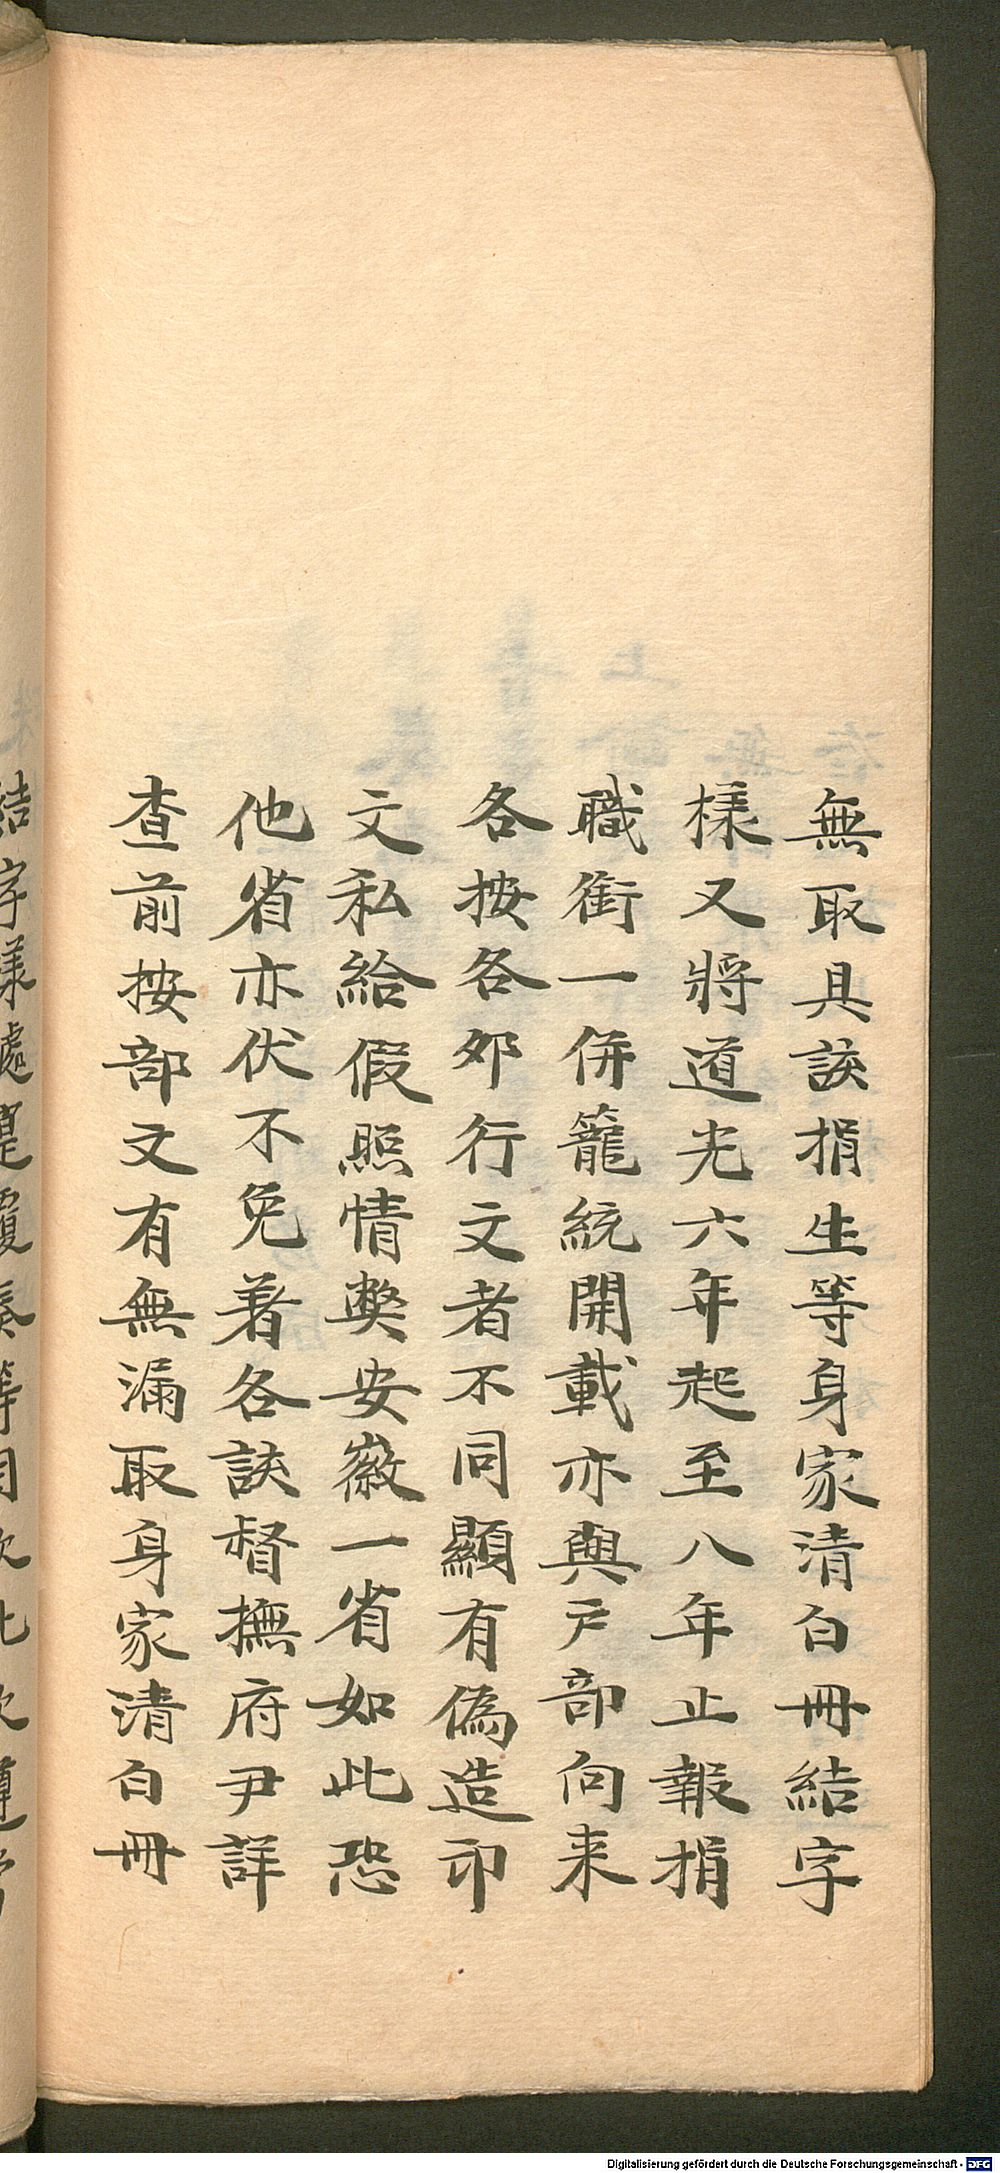 無取具該捐生等身家清白冊結字
樣又將道光六年起至八年止報捐
職銜一併籠統開載亦與户部向来
各按各夘行文者不同顯有偽造印
文私給假照情獘安徽一省如此恐
他省亦伏不免着各該督撫府尹詳
查前按部文有無漏取身家清白冊
結字樣處
Digitalisierung gefördert durch die Deutsche Forschungsgemeinschaft - DFG